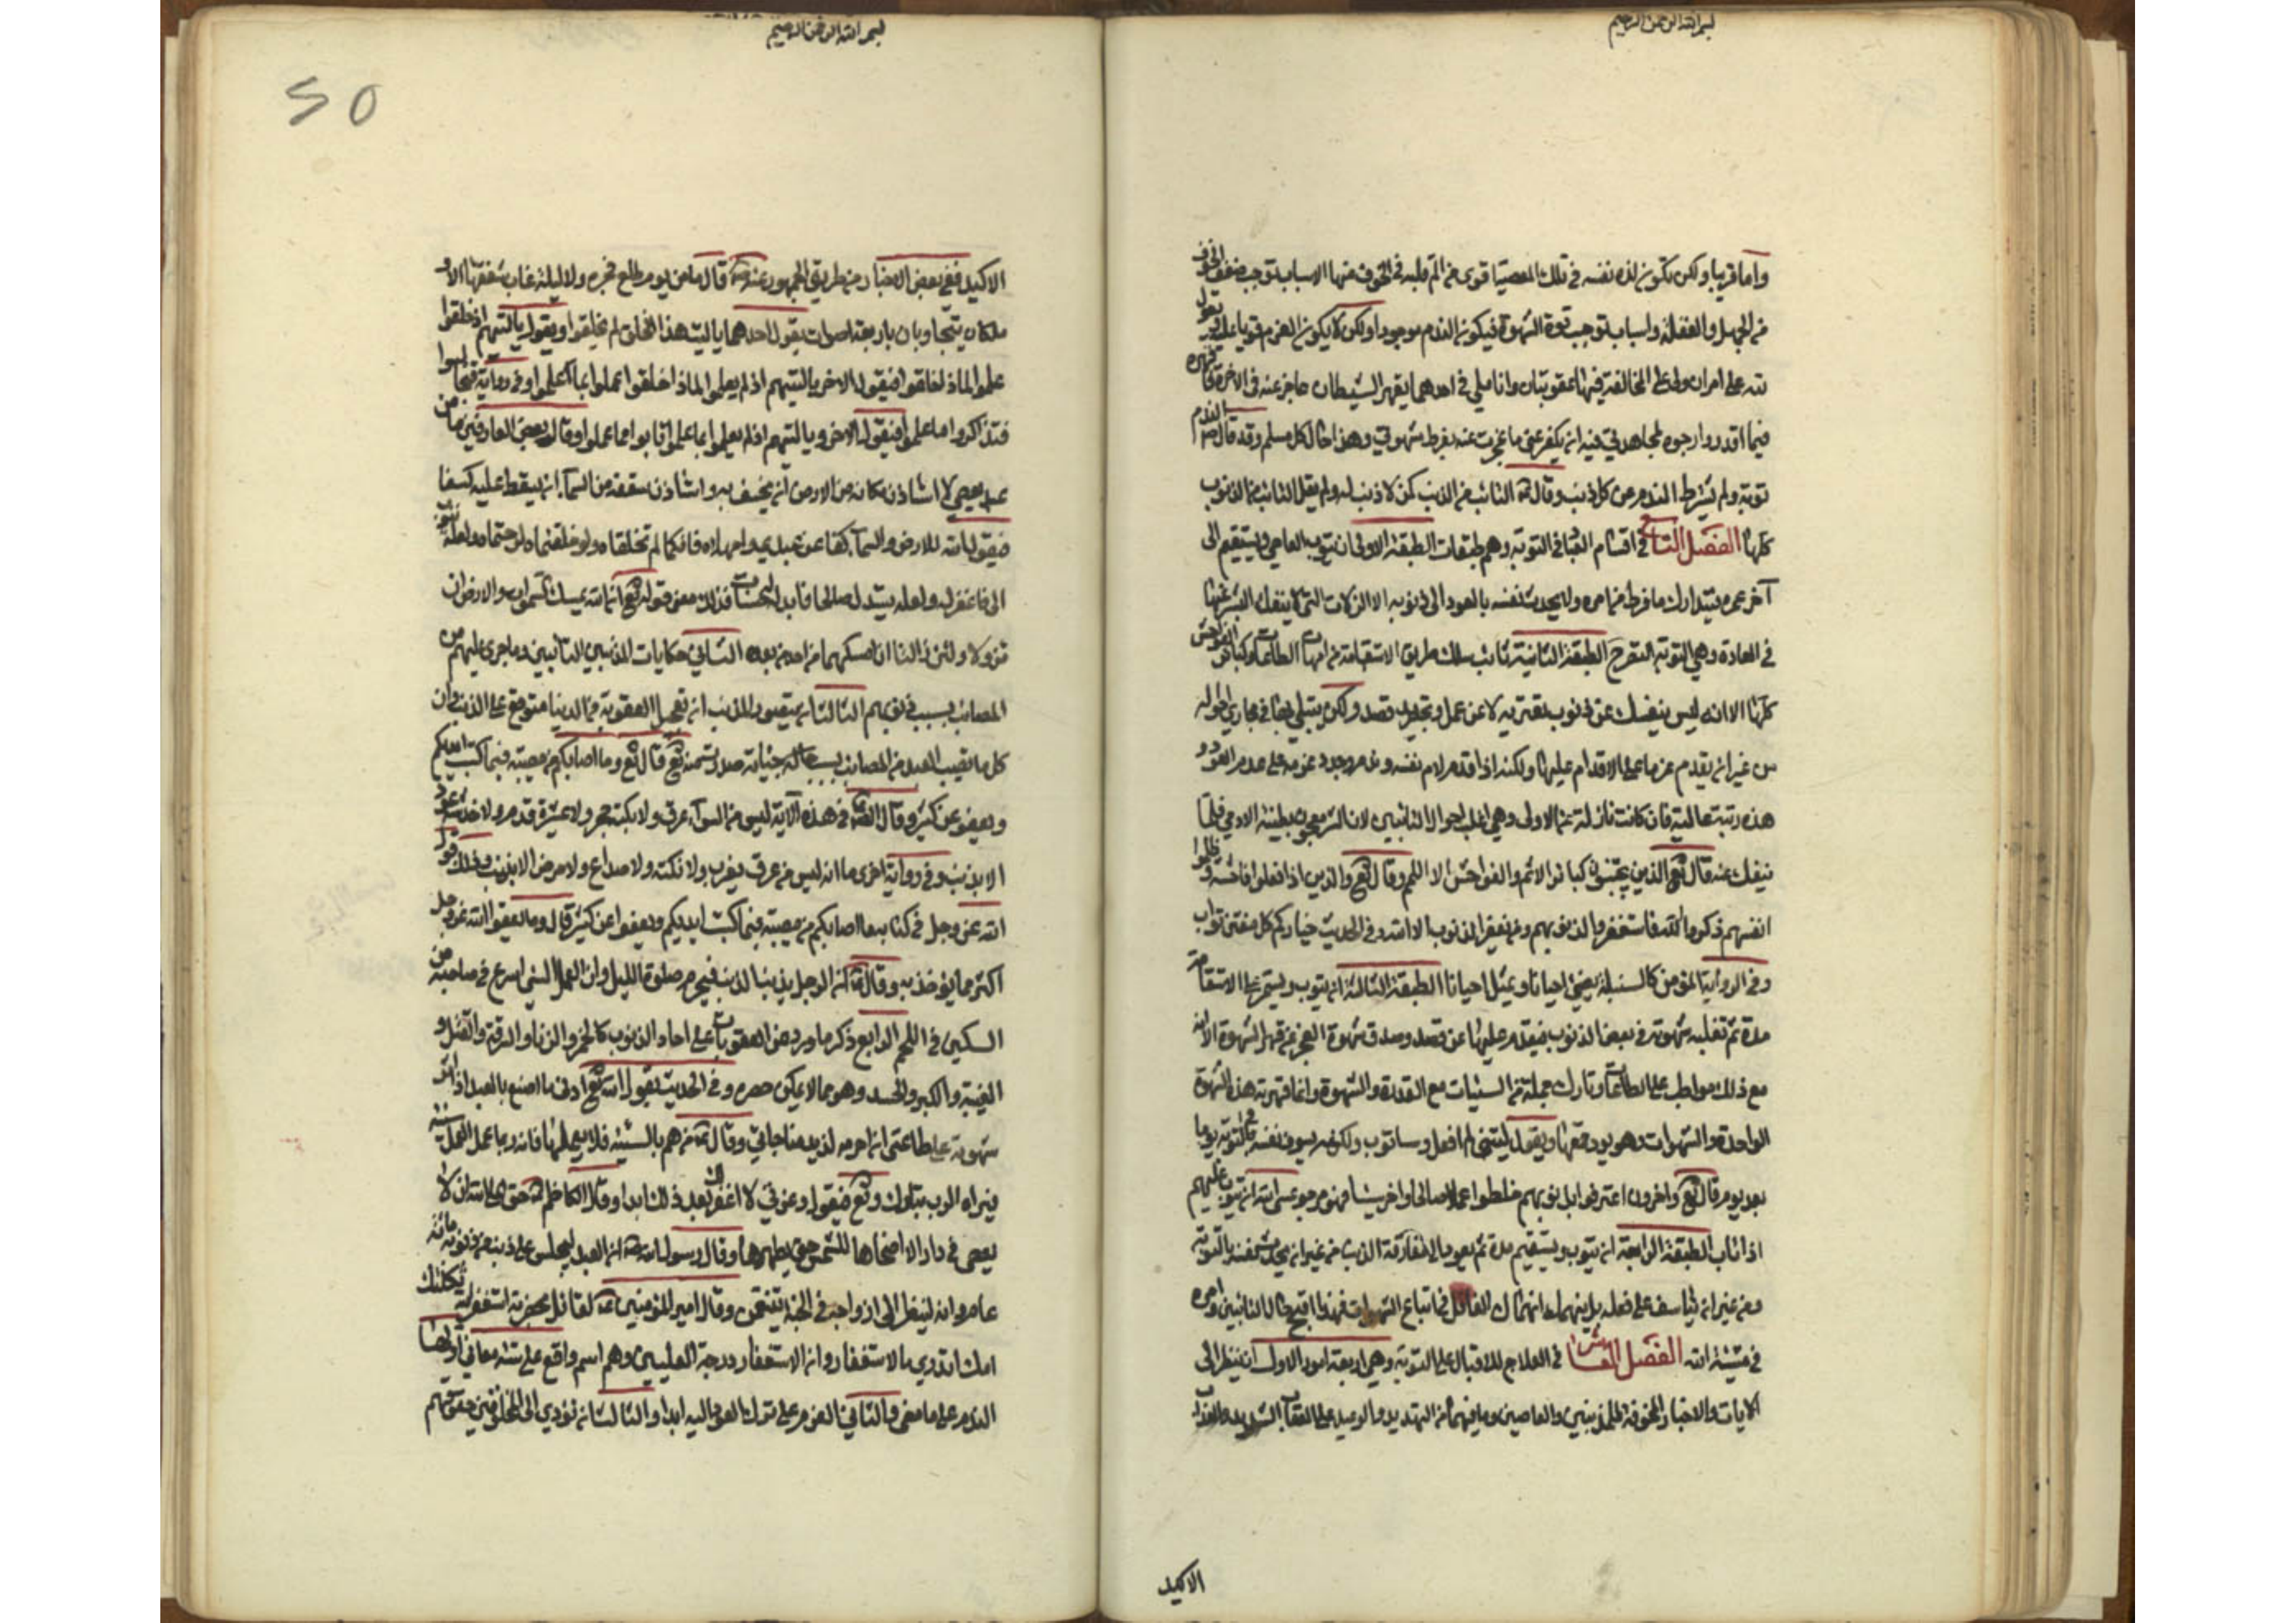 بسم الله الرحمن الرحيم
واما قريبا ولكن تكون لذة نفسه في تلك المعصية اقوى من الم قلبه في الخوف منها لاسباب توجب ضعف الخوف
من الجهل والغفلة واسباب توجب قوة الشهوة فيكون الندم موجودا ولكن لا يكون العزم قويا عليه يقول
لله علي امران ولي على المخالفة فيهما عقوبتان وانا ملي في احدهما بقهر الشيطان عاجز عنه في الاخر فانا اقهره
فيما اقدر وارجو بمجاهدتي فيه ان يكفر عني ما عجزت عنه بفرط شهوتي وهذا حال كل مسلم وقد قال ص الندم
توبة ولم يشترط الندم من كل ذنب وقال ع التائب من الذنب كمن لا ذنب له ولم يقل التائب من الذنوب
كلها الفصل التاسع في اقسام العباد في التوبة وهم طبقات الطبقة الاولى ان يتوب العاصي ويستقيم الى
آخر عمره فيتدارك ما فرط من امره ولا يحدث نفسه بالعود الى ذنوبه الا الزلات التي لا ينفك البشر عنها
في العادة وهي التوبة النصوح الطبقة الثانية تائب سلك طريق الاستقامة في امهات الطاعات وكبائر الفواحش
كلها الا انه ليس ينفك عن ذنوب تعتريه لا عن عمد وتجريد قصد ولكن يبتلي بها في مجاري احواله
من غير ان يقدم عزما على الاقدام عليها ولكنه اذا اقدم لام نفسه وندم وجدد عزمه على عدم العود و
هذه رتبة عالية فان كانت نازلة عن الاولى وهي اغلب احوال التائبين لان الشر معجون بطينة الادمي قلما
ينفك عنه قال تع الذين يجتنبون كبائر الاثم والفواحش الا اللمم وقال تع والذين اذا فعلوا فاحشة او ظلموا
انفسهم ذكروا الله فاستغفروا لذنوبهم ومن يغفر الذنوب الا الله وفي الحديث خياركم كل مفتن تواب
وفي الرواية المؤمن كالسنبلة يفيئ احيانا ويميل احيانا الطبقة الثالثة ان يتوب ويستمر على الاستقامة
مدة ثم تغلبه شهوته في بعض الذنوب فيقدم عليها عن قصد وصدق شهوة لعجزه عن قهر الشهوة الا انه
مع ذلك مواظب على الطاعات وتارك جملة من السيئات مع القدرة والشهوة وانما قهرته هذه الشهوة
الواحدة والشهوات وهو يود قمعها ويقول ليتني لم افعل وساتوب ولكنه يسوف نفسه في التوبة يوما
بعد يوم قال تع واخرون اعترفوا بذنوبهم خلطوا عملا صالحا واخر سيئا فهو مرجو عسى الله ان يتوب عليهم
اذا تاب الطبقة الرابعة ان يتوب ويستقيم مدة ثم يعود الى مقارفة الذنب من غير ان يحدث نفسه بالتوبة
ومن غير ان يتاسف على فعله بل ينهمك انهماك الغافل في اتباع الشهوات فهذا اقبح حال التائبين وامره
في مشيئة الله الفصل العاشر في العلاج للاقبال على التوبة وهي اربعة امور الاول ان ينظر الى
الايات والاخبار المخوفة للمذنبين والعاصين وما فيهما من التهديد والوعيد على العقاب الشديد والعذاب
الاكيد
بسم الله الرحمن الرحيم
50
الاكيد ففي بعض الاخبار من طريق الجمهور عنه ص قال ما من يوم طلع فجره ولا ليلة غاب شفقها الا و
ملكان يتجاوبان باربعة اصوات يقول احدهما يا ليت هذا الخلق لم يخلقوا ويقول يا ليتهم اذ خلقوا
علموا لماذا خلقوا فيقول الاخر يا ليتهم اذ لم يعلموا لماذا خلقوا عملوا بما علموا وفي رواية تجالسوا
فتذاكروا ما علموا فيقول الاخر ويا ليتهم اذ لم يعلموا بما علموا تابوا مما عملوا وقال بعض العارفين ما من
عبد يعصي الا استاذن مكانه من الارض ان يخسف به واستاذن سقفه من السمآء ان يسقط عليه كسفا
فيقول الله للارض والسمآء كفا عن عبدي وامهلاه فانكما لم تخلقاه ولو خلقتماه لرحمتماه ولعله يتوب
الي فاغفر له ولعله يستبدل صالحا فابدله حسنات فذلك معنى قوله تع ان الله يمسك السموات والارض ان
تزولا ولئن زالتا ان امسكهما من احد من بعده الثاني حكايات المذنبين التائبين وما جرى عليهم من
المصائب بسبب ذنوبهم الثالث ان يتصور المذنب ان تعجيل العقوبة في الدنيا متوقع على الذنب وان
كل ما يصيب العبد من المصائب بسبب جناية صدرت منه قال تع وما اصابكم من مصيبة فبما كسبت ايديكم
ويعفو عن كثير وقال الصادق ع في هذه الآية ليس من التوآء عرق ولا نكبة حجر ولا عثرة قدم ولا خدش عود
الا بذنب وفي رواية اخرى اما انه ليس من عرق يضرب ولا نكبة ولا صداع ولا مرض الا بذنب وذلك قول
الله عز وجل في كتابه ما اصابكم من مصيبة فبما كسبت ايديكم ويعفوا عن كثير قال وما يعفوا الله عز وجل
اكثر مما يؤخذ به وقال ع ان الرجل يذنب الذنب فيحرم صلوة الليل وان العمل السيئ اسرع في صاحبه من
السكين في اللحم الرابع ذكر ما ورد من العقوبات على احاد الذنوب كالخمر والزنا والسرقة والقتل و
الغيبة والكبر والحسد وهو مما لا يمكن حصره وفي الحديث يقول الله تع ادنى ما اصنع بالعبد اذا آثر
شهوته على طاعتي ان احرمه لذيذ مناجاتي وقال ع من هم بالسيئة فلا يعملها فانه ربما عمل العمل السيئة
فيراه الرب تبارك وتع فيقول وعزتي لا اغفر لك بعد ذلك ابدا وقال الكاظم ع حق على الله ان لا
يعصى في دار الا اضحاها للشمس حتى يطهرها وقال رسول الله ص ان العبد ليحبس على ذنب من ذنوبه مائة
عام وانه لينظر الى ازواجه في الجنة يتنعمن وقال امير المؤمنين ع لقائل بحضرته استغفر الله ثكلتك
امك اتدري ما الاستغفار وان الاستغفار درجة العليين وهو اسم واقع على ستة معاني اولها
الندم على ما مضى والثاني العزم على ترك العود اليه ابدا والثالث ان تؤدي الى المخلوقين حقوقهم